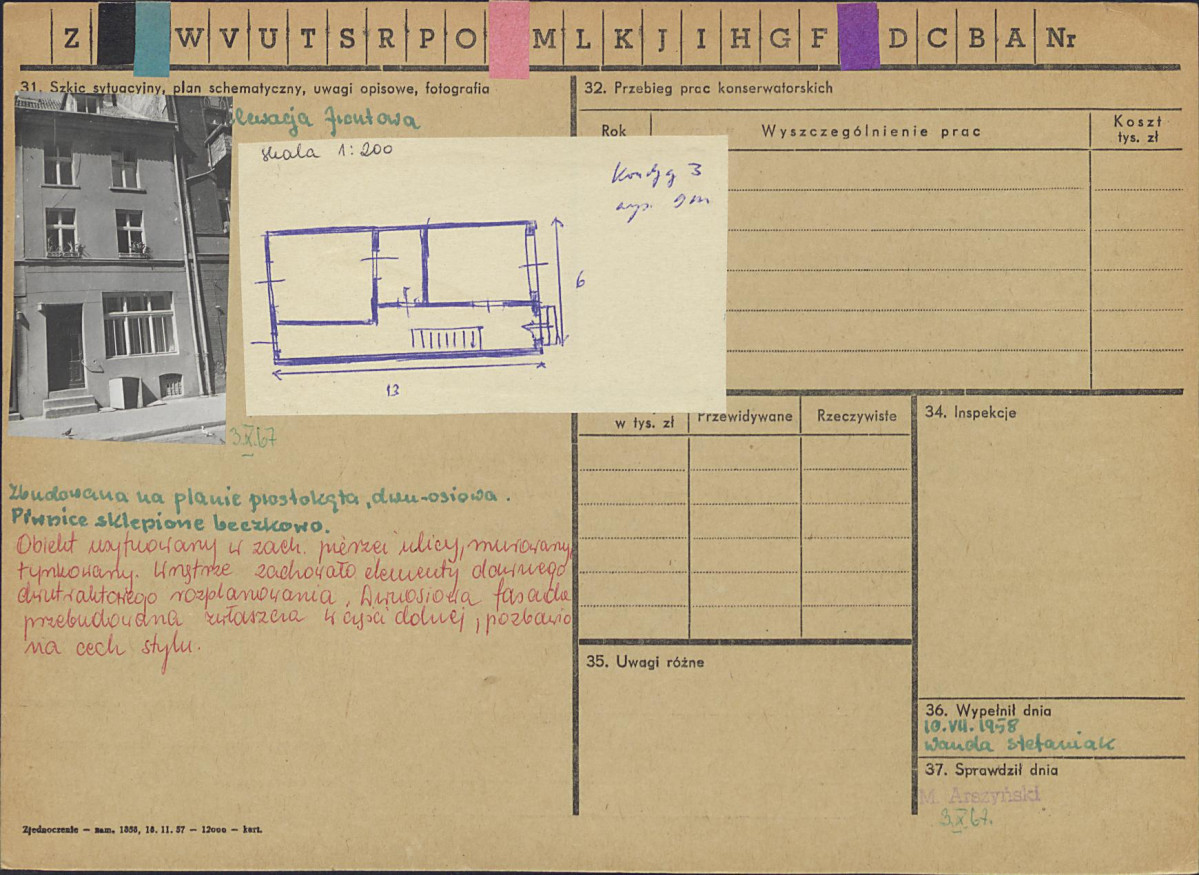 Z W V U T S R P O M L K J I H G F D C B A Nr
31. Szkic sytuacyjny, plan schematyczny, uwagi opisowe, fotografia
elewacja frontowa
skala 1:200
Kondyg 3
wys. 9m
6
13
3.X.67
Zbudowana na planie prostokąta, dwu-osiowa.
Piwnice sklepione beczkowo.
Obiekt usytuowany w zach. pierzei ulicy, murowany,
tynkowany. Wnętrze zachowało elementy dawnego
dwutraktowego rozplanowania. Dwuosiowa fasada
przebudowana zwłaszcza w części dolnej, pozbawio
na cech stylu.
Zjednoczenie — zam. 1358, 18. 11. 57 — 12000 — kart.
32. Przebieg prac konserwatorskich
Rok Wyszczególnienie prac Koszt
tys. zł
w tys. zł Przewidywane Rzeczywiste
34. Inspekcje
35. Uwagi różne
36. Wypełnił dnia
10.VII.1958
Wanda Stefaniak
37. Sprawdził dnia
M. Arszyński
3.X.67.